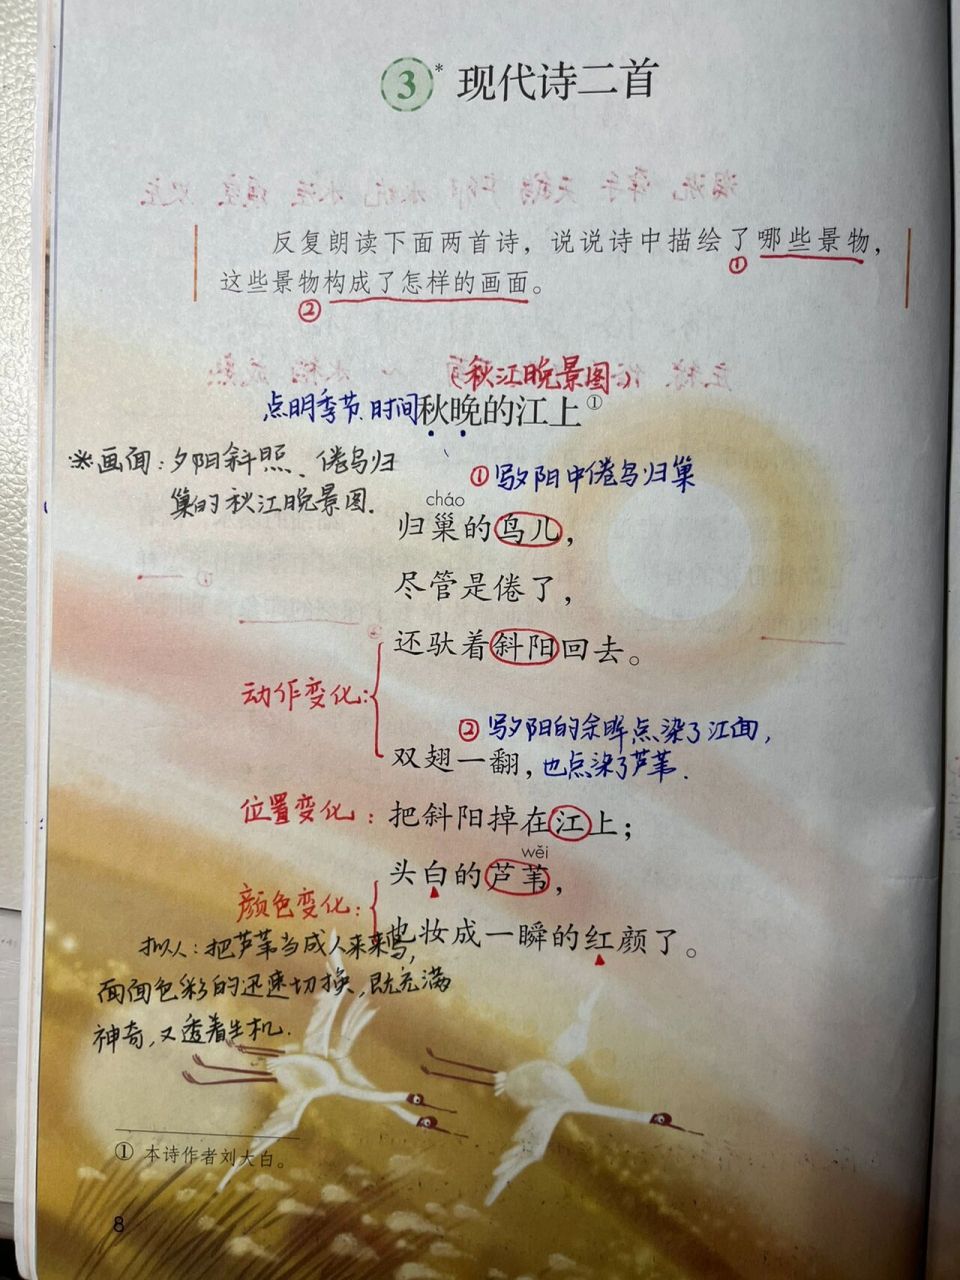 3* 现代诗二首
反复朗读下面两首诗，说说诗中描绘了哪些景物，
①
这些景物构成了怎样的画面。
②
（秋江晚景图）
点明季节、时间
秋晚的江上①
※画面：夕阳斜照、倦鸟归
巢的秋江晚景图.
①写夕阳中倦鸟归巢
cháo
归巢的鸟儿，
尽管是倦了，
还驮着斜阳回去。
动作变化：
②写夕阳的余晖点染了江面，
双翅一翻，
也点染了芦苇.
位置变化：
把斜阳掉在江上；
wěi
头白的芦苇，
颜色变化：
也妆成一瞬的红颜了。
拟人：把芦苇当成人来来写，
面面色彩的迅速切换，既充满
神奇，又透着生机.
① 本诗作者刘大白。
8